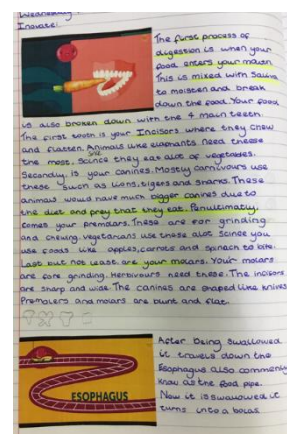 Wednesday
Inovate:
The first process of
digestion is when your
food enters your mouth
This is mixed with Saliva
to moisten and break
down the food. Your food
is also broken down with the 4 main teeth.
The first tooth is your Incisors where they chew
and flatten. Animals like elephants need theese
the most. Scince they eat alot of vegetables.
Secondly. is your canines. Mostly carnivours use
these such as Lions, tigers and sharks. These
animals would have much bigger canines due to
the diet and prey that they eat. Penultimatly.
comes your premolars. These are for grinding
and chewing. Vegetarians use these alot scince you
use foods like apples, carrots and spinach to bite.
Last but not least are your molars. Your molars
are fore grinding. Herbivours need these. The incisors
are sharp and wide. The canines are shaped like knives
Premolers and molars are blunt and flat.
After being swallowed
it travels down the
Esophagus also commonly
know as the food pipe.
Now it is swallowed it
turns into a bolas
ESOPHAGUS